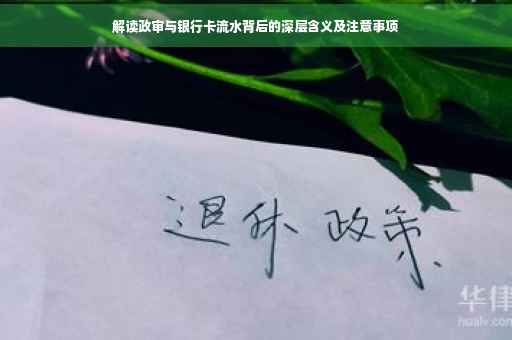 解读政审与银行卡流水背后的深层含义及注意事项
退休 政策
华律
hualv.com